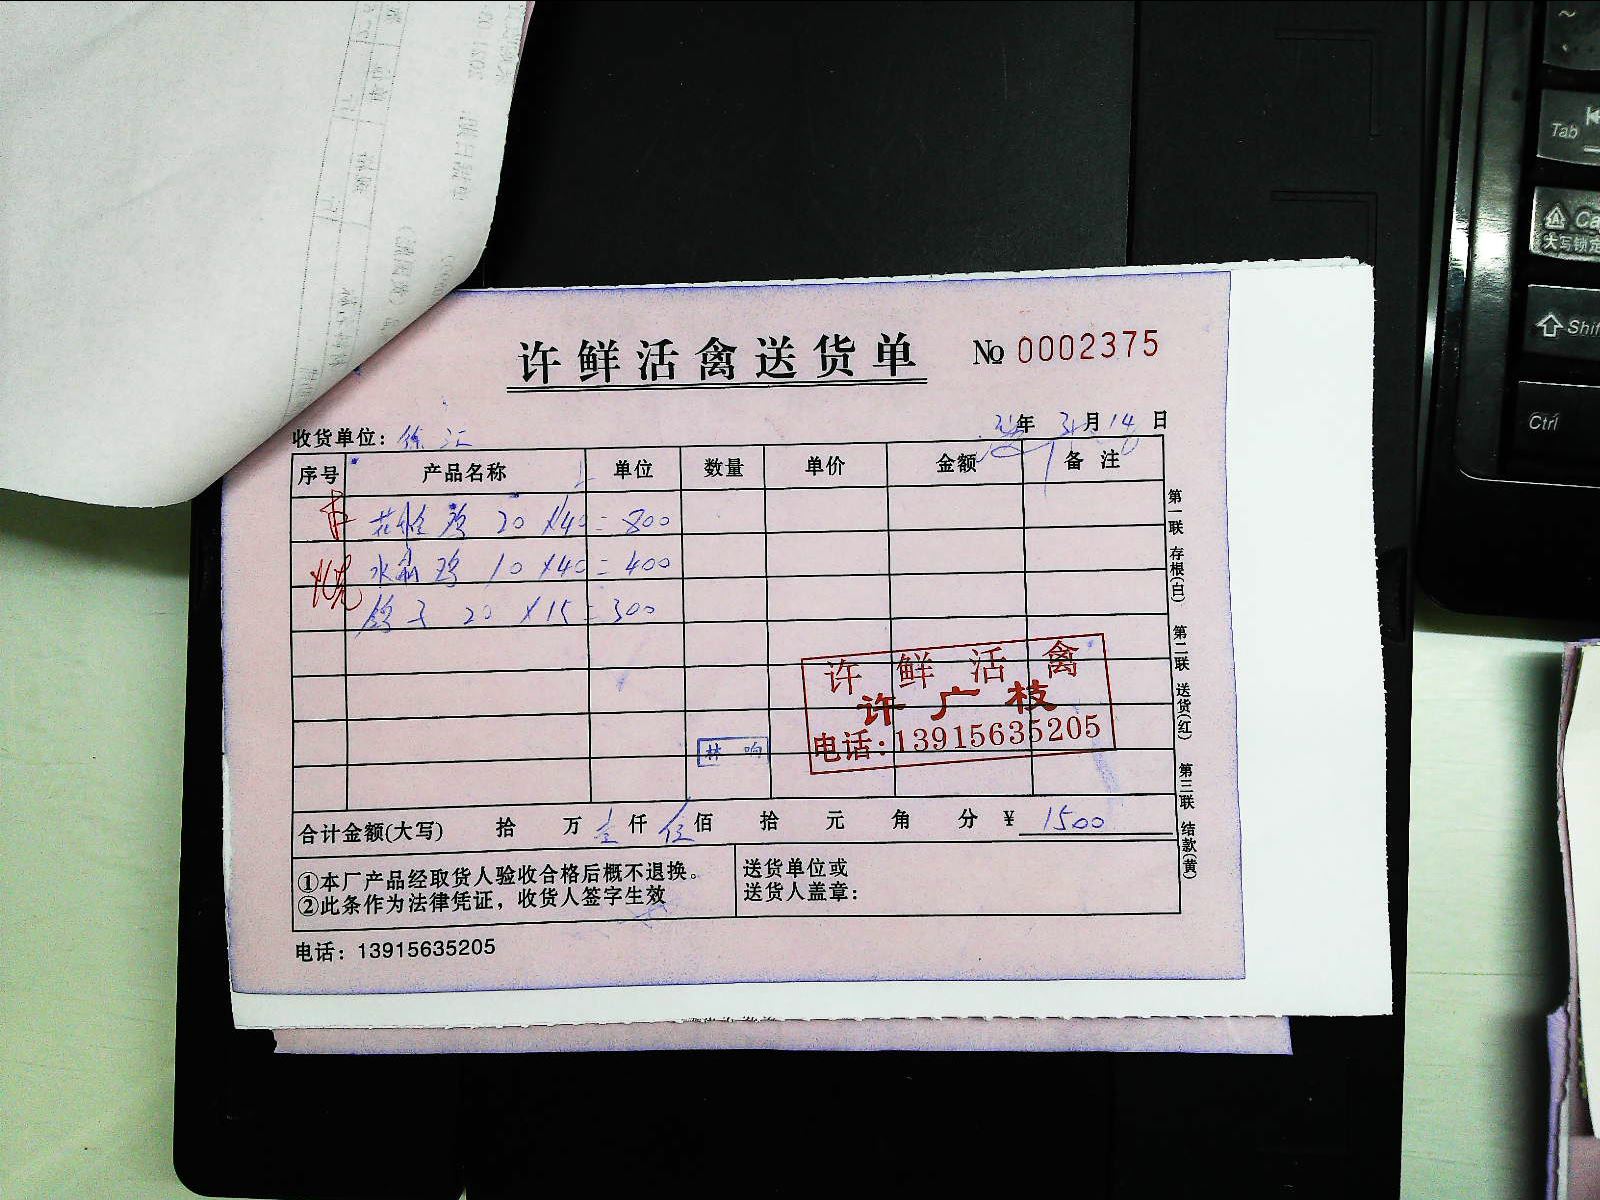 许鲜活禽送货单 № 0002375
收货单位：徐汇 年 3月14日
序号 产品名称 单位 数量 单价 金额 备注
20×40=800
水 鸡 10×40=400
鸽子 20×15=300
许鲜活禽
许广枝
电话:13915635205
林 响
合计金额(大写) 拾 万 壹仟 伍佰 拾 元 角 分 ¥ 1500
①本厂产品经取货人验收合格后概不退换。
②此条作为法律凭证，收货人签字生效
送货单位或
送货人盖章:
电话：13915635205
第一联 存根(白)
第二联 送货(红)
第三联 结款(黄)
Tab
大写锁定
Shif
Ctrl